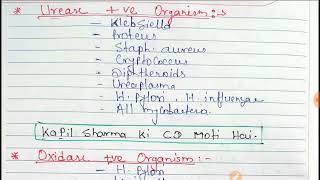 * Urease +ve Organism:-
- Klebsiella
- Proteus
- Staph. aureus
- Cryptococcus
- Diptheroids
- Ureaplasma
- H. pylori, H influenzae
- All mycobacteria.
Kapil Sharma Ki CD Moti Hai.
* Oxidase +ve Organism:-
- H. pylori